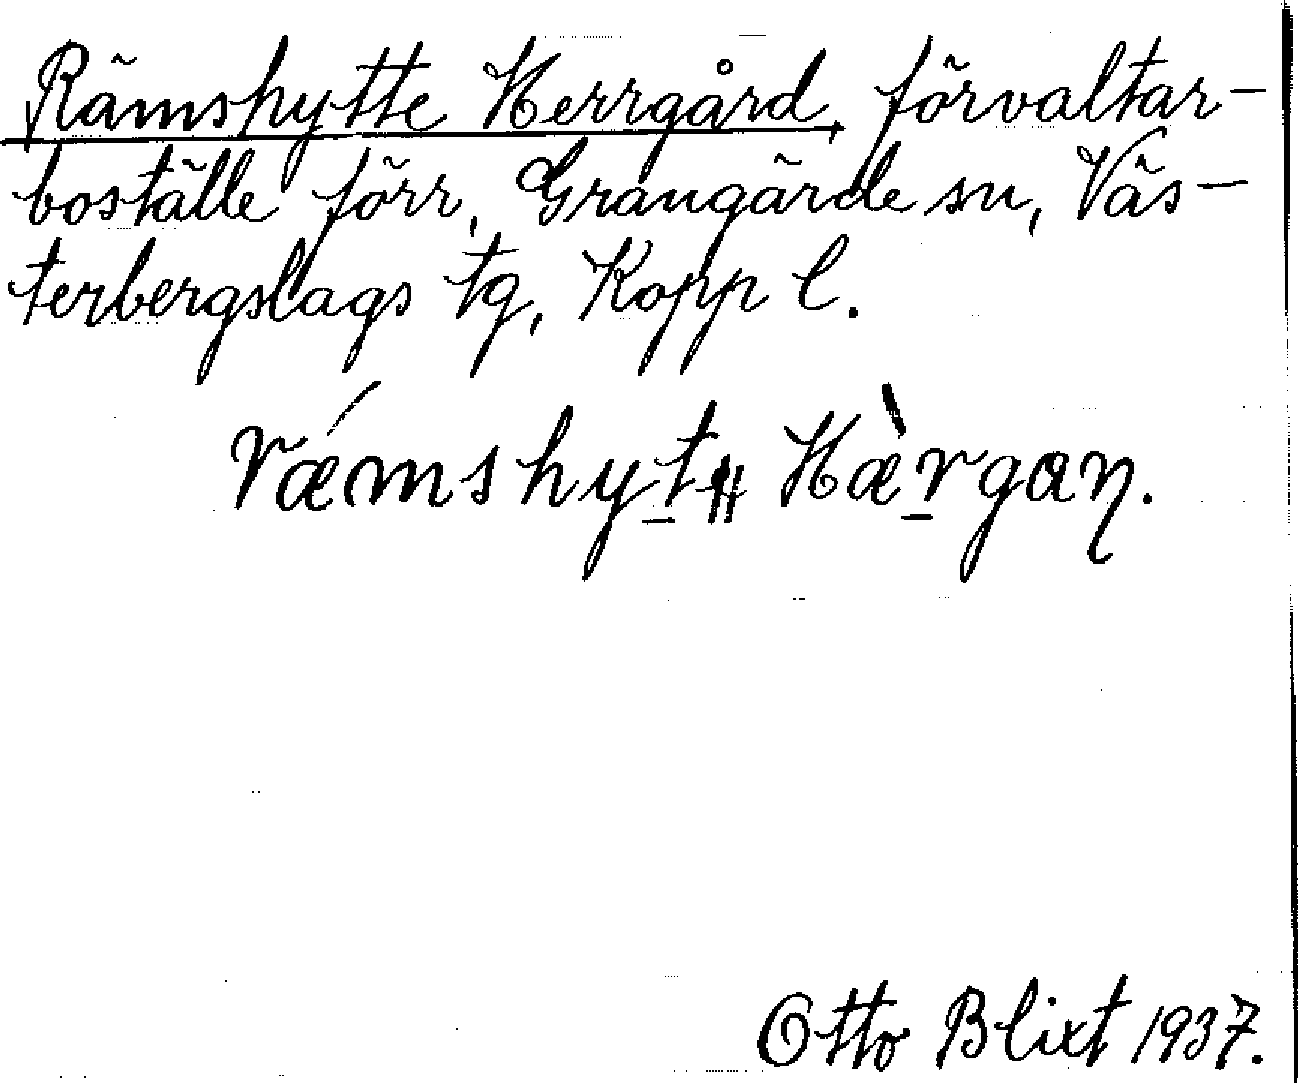 Rämshytte Herrgård, förvaltar-
boställe förr, Grangärde sn, Väs-
terbergslags tg, Kopp l.
Otto Blixt 1937.